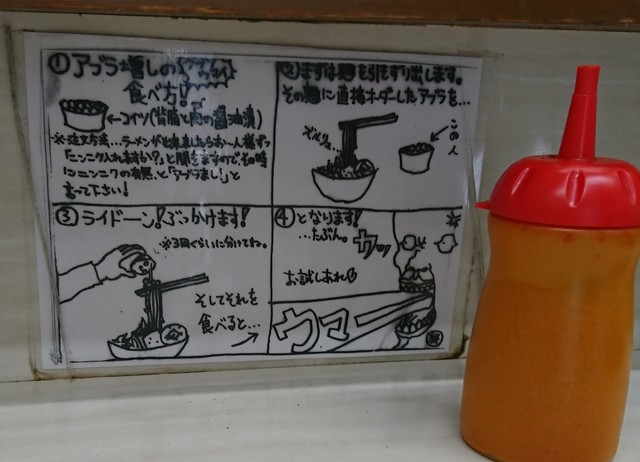 ①アブラ増しの
食べ方!
←コイツ(背脂と肉の醤油漬)
※注文方法…ラーメンが出来ましたらお一人様ずつ
「ニンニク入れますか?」と聞きますのでその時
にニンニクの有無と「アブラまし!」と
言って下さい!
②まずは麺を引きずり出します。
その麺に直接オーダーしたアブラを…
この人
③ライドーン!ぶっかけます!
※3回ぐらいに分けてね。
そしてそれを
食べると…
④となります!
…たぶん。
カッ
お試しあれ
ウマー